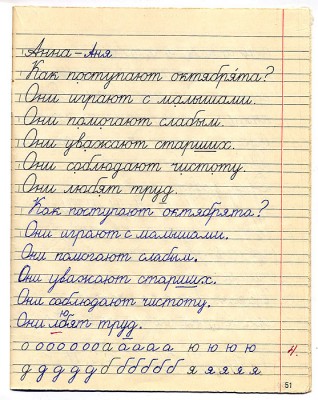 Анна - Аня
Как поступают октябрята?
Они играют с малышами.
Они помогают слабым.
Они уважают старших.
Они соблюдают чистоту.
Они любят труд.
Как поступают октябрята?
Они играют с малышами.
Они помогают слабым.
Они уважают старших.
Они соблюдают чистоту.
ю
Они лбят труд.
о о о о о о о а а а а а ю ю ю ю 4.
д д д д д б б б б б б я я я я я
51